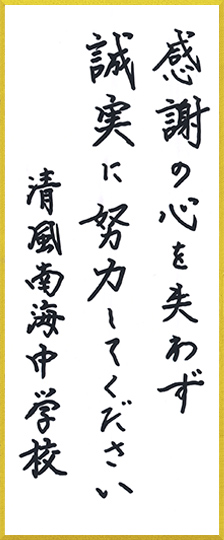 感謝の心を失わず
誠実に努力してください
清風南海中学校